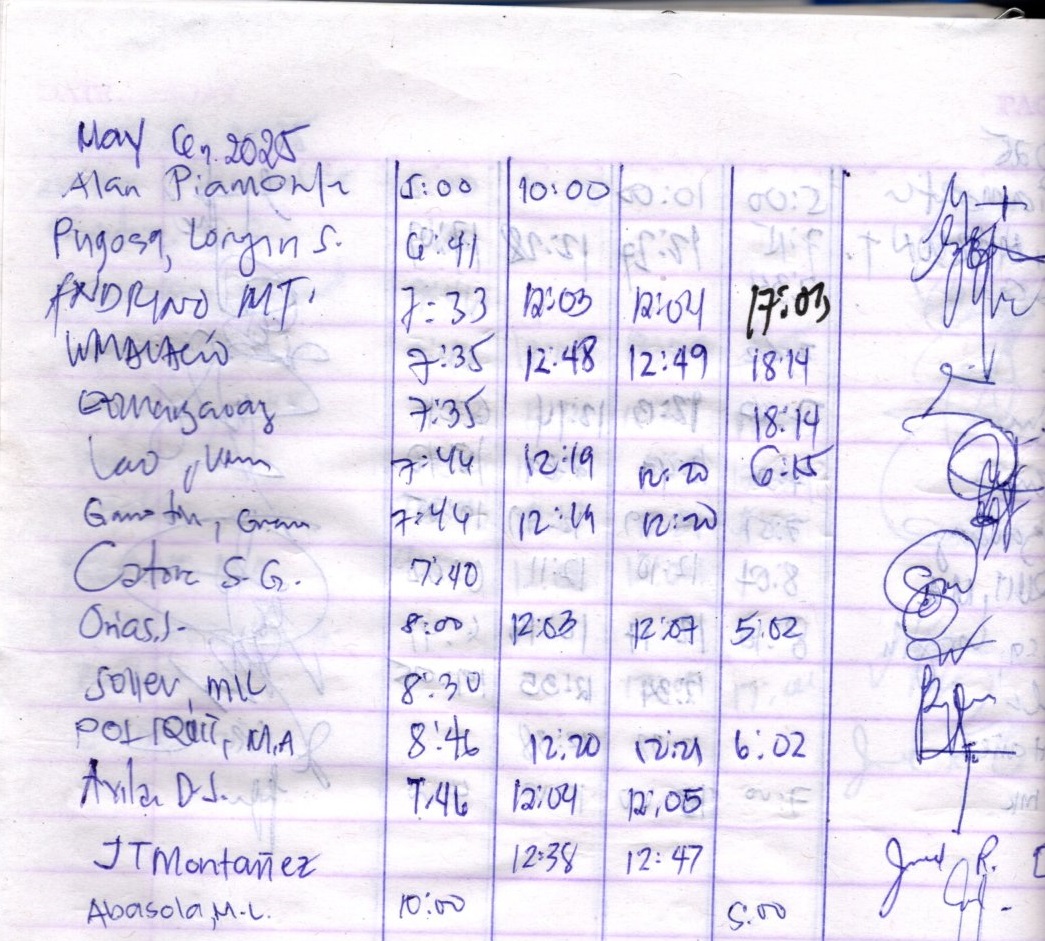 May 6, 2025
Alan Piamonte 5:00 10:00
Pugosa, Longin S. 6:41
ANDRINO MT. 7:33 12:03 12:04 17:03
WMALACIO 7:35 12:48 12:49 18:14
7:35 18:14
Lao, 7:44 12:19 12:20 6:15
7:44 12:19 12:20
Catore S.G. 7:40
Orias, J. 8:00 12:03 12:07 5:02
Soller, MK 8:30
M.A 8:46 12:20 12:21 6:02
Avila D.J. 7:46 12:04 12:05
JTMontañez 12:38 12:47
Abasola, M.L. 10:00 5:00